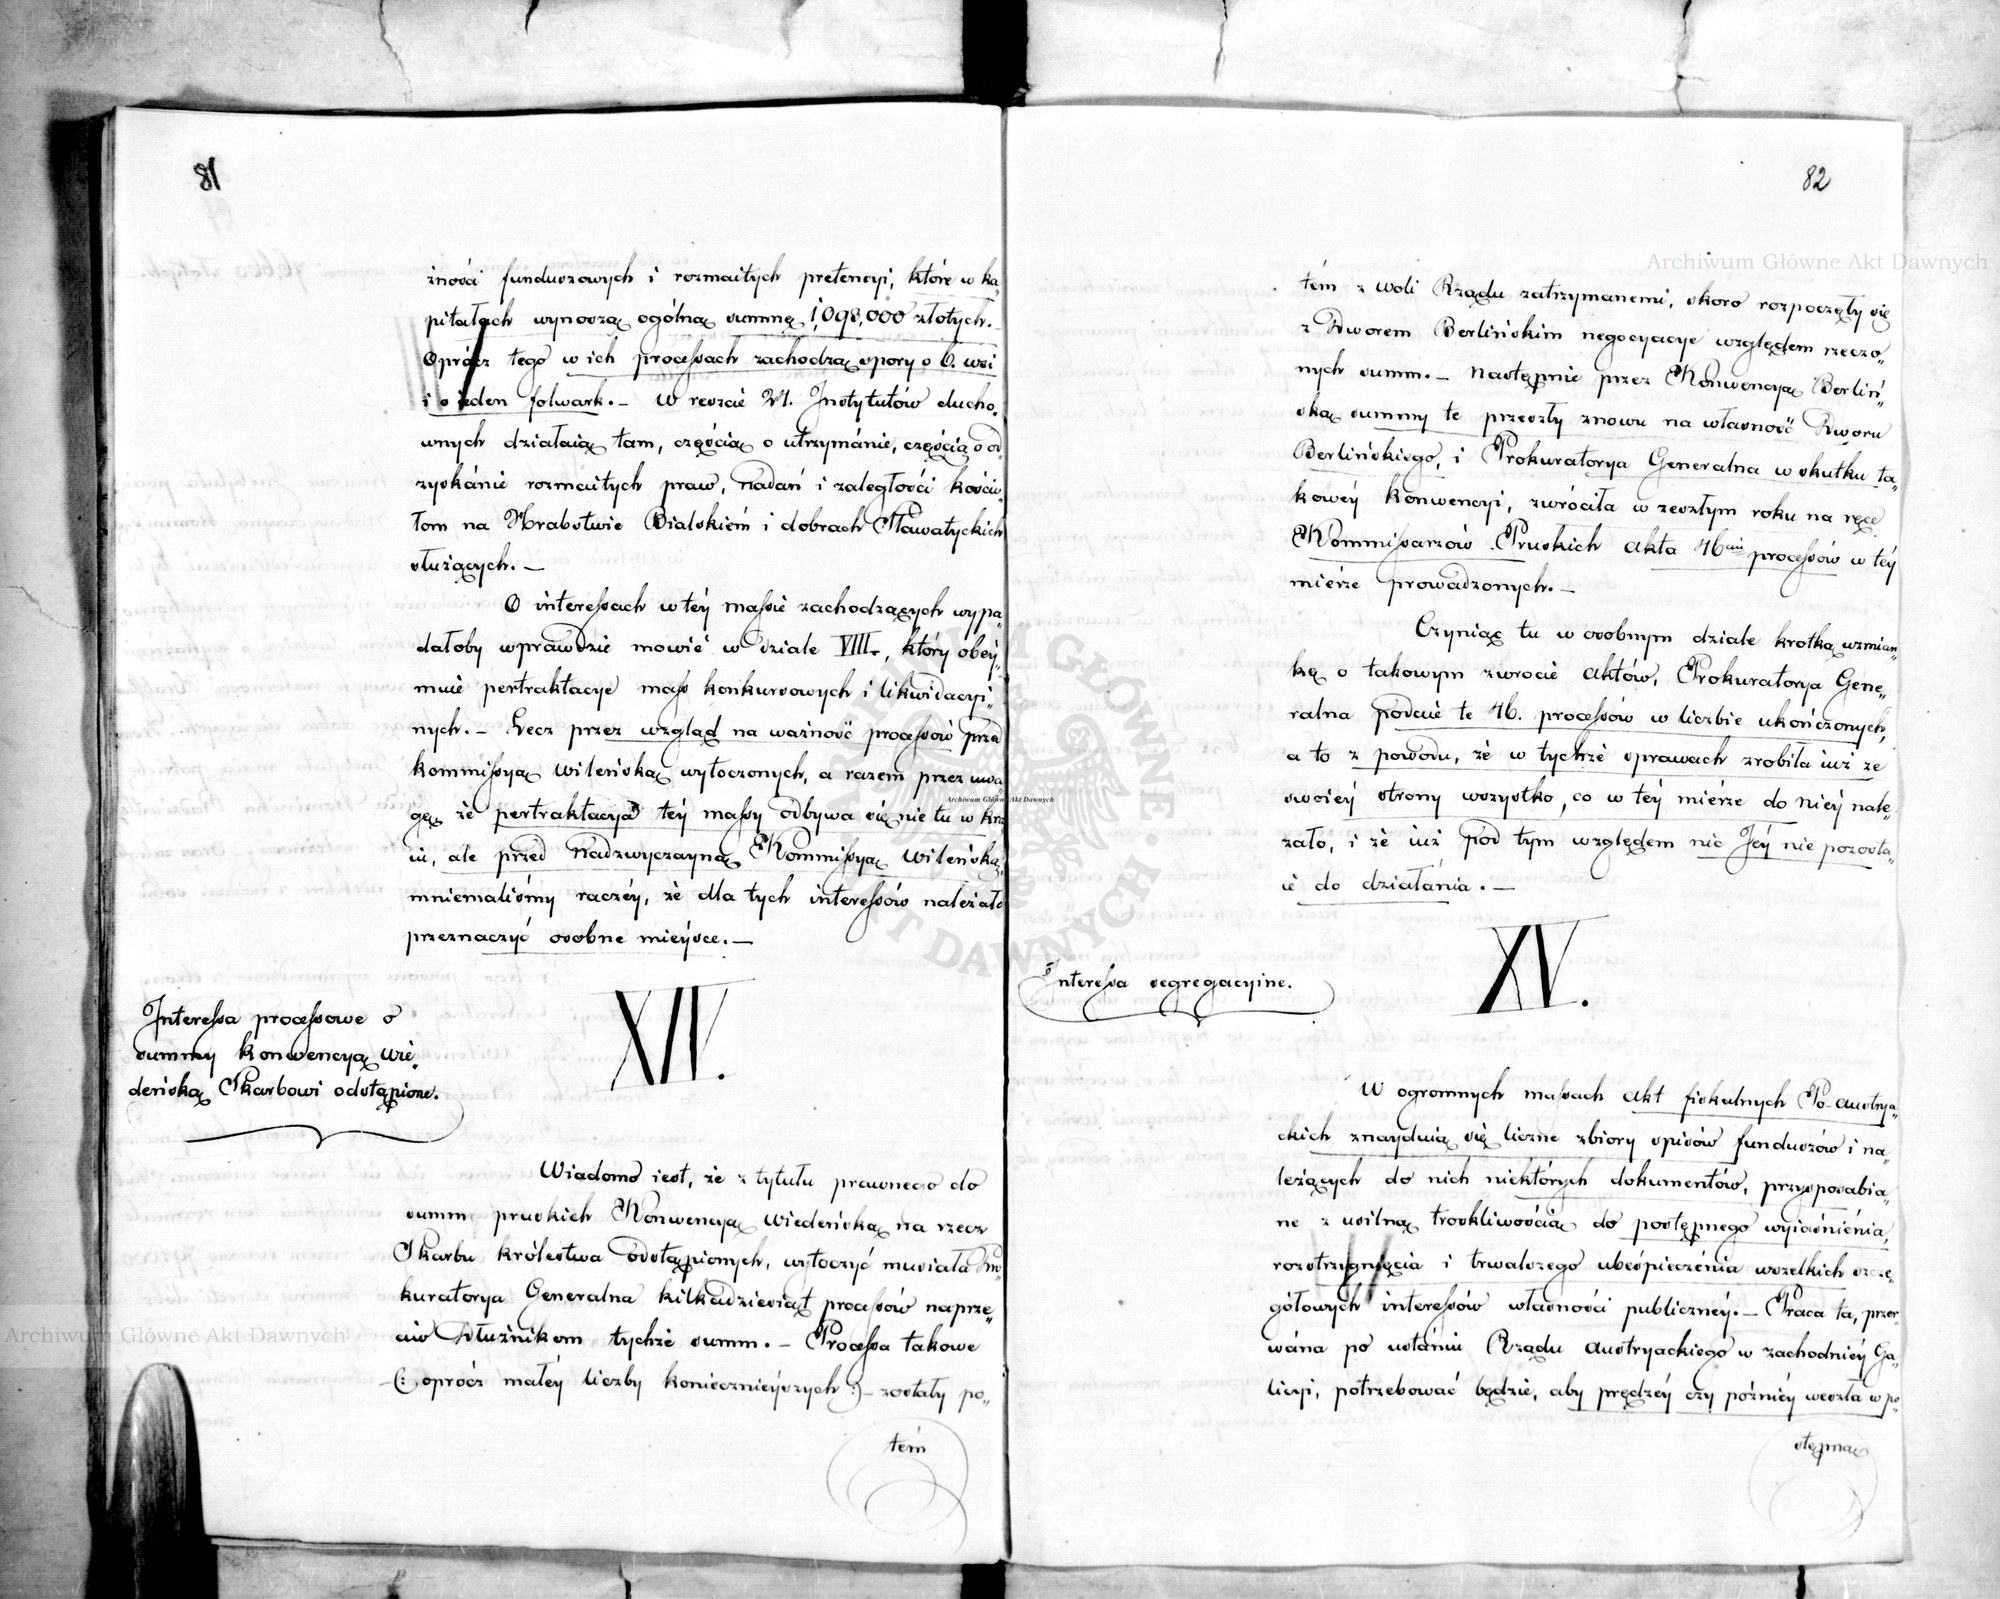 81
żności funduszowych i rozmaitych pretencyi, które w ka„
pitałach wynoszą ogólną summę 1,098,000 złotych.—
Oprócz tego w ich processach zachodzą spory o 6. wsi
i o ieden folwark.— W reszcie 21. Instytutów ducho„
wnych działaią tam, częścią o utrzymánie, częścią o od„
zyskánie rozmaitych praw, nadań i zaległości kościo„
łom na Hrabstwie Bialskiém i dobrach Sławatyckich
służących.—
O interessach w téy massie zachodzących wypa„
dałoby wprawdzie mowić w dziale VIII., który obéy„
muie pertraktacye mass konkursowych i likwidacyi„
nych.— Lecz przez wzgląd na ważność processów przed
kommissyą Wileńską wytoczonych, a razem przez uwa„
gę, że pertraktacya téy massy odbywa się nie tu w kra„
iu, ale przed Nadzwyczayną Kommissyą Wileńską,
mniemaliśmy raczéy, że dla tych interessów należało
przeznaczyć osobne mieysce.—
XIV.
Interessa processowe o
summy konwencyą Wie„
deńską Skarbowi odstąpione.
Wiadomo iest, że z tytułu prawnego do
summ pruskich Konwencyą Wiedeńską na rzecz
Skarbu królestwa odstąpionych, wytoczyć musiała Pro„
kuratorya Generalna kilkadziesiąt processów naprze„
ciw Dłużnikom tychże summ.— Processa takowe
—(: oprócz małéy liczby koniecznieyszych :)— zostały po„
tém
82
tém z woli Rządu zatrzymanemi, skoro rozpoczęły się
z Dworem Berlińskim negocyacye względem rzeczo„
nych summ.— Następnie przez Konwencyą Berliń„
ską summy te przeszły znowu na własność Dworu
Berlińskiego, i Prokuratorya Generalna w skutku ta„
kowéy konwencyi, zwróciła w zeszłym roku na ręce
Kommissarzów Pruskich akta 46ciu processów w téy
mierze prowadzonych.—
Czyniąc tu w osobnym dziale krotką wzmian„
kę o takowym zwrocie aktów, Prokuratorya Gene„
ralna podaie te 46. processów w liczbie ukończonych,
a to z powodu, że w tychże sprawach zrobiła iuż ze
swoiéy strony wszystko, co w téy mierze do niéy nale„
żało, i że iuż pod tym względem nic Jéy nie pozosta„
ie do działánia.—
XV.
Interessa segregacyine.
W ogromnych massach akt fiskalnych Po-austrya„
ckich znayduią się liczne zbiory spisów funduszów i na„
leżących do nich niektórych dokumentów, przysposabia„
ne z usilną troskliwością do postępnego wyiaśnienia,
rozstrzygnięcia i trwalszego ubeśpieczénia wszelkich szcze„
gółowych interessów własności publicznéy.— Praca ta, przer„
wána po ustániu Rządu austryackiego w zachodniéy Ga„
licyi, potrzebować będzie, aby prędzéy czy późniéy weszła w po„
stępną
Archiwum Główne Akt Dawnych
Archiwum Główne Akt Dawnych
Archiwum Główne Akt Dawnych
ARCHIWUM GŁÓWNE AKT DAWNYCH